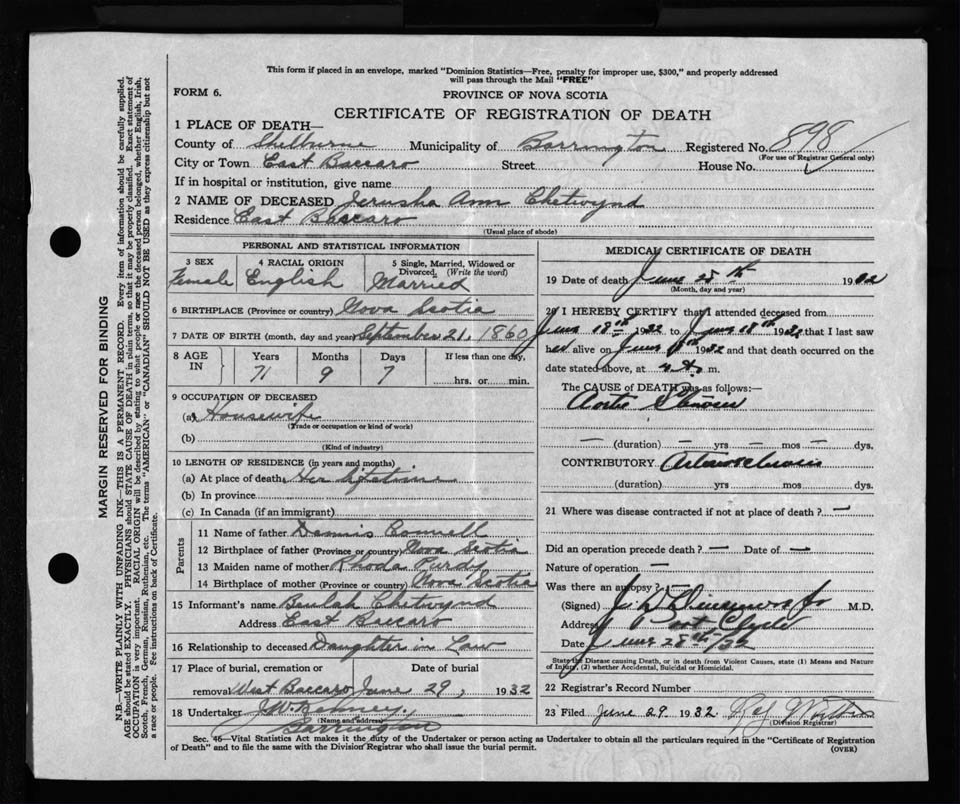 This form if placed in an envelope, marked "Dominion Statistics—Free, penalty for improper use, $300," and properly addressed
will pass through the Mail "FREE"
FORM 6.
PROVINCE OF NOVA SCOTIA
CERTIFICATE OF REGISTRATION OF DEATH
1 PLACE OF DEATH—
County of Shelburne Municipality of Barrington Registered No. 898
(For use of Registrar General only)
City or Town East Baccaro Street House No.
If in hospital or institution, give name
2 NAME OF DECEASED Jerusha Ann Chetwynd
Residence East Baccaro
(Usual place of abode)
PERSONAL AND STATISTICAL INFORMATION
3 SEX 4 RACIAL ORIGIN 5 Single, Married, Widowed or
Divorced (Write the word)
Female English Married
6 BIRTHPLACE (Province or country) Nova Scotia
7 DATE OF BIRTH (month, day and year) September 21, 1860
8 AGE IN Years Months Days If less than one day,
71 9 7 hrs. or min.
9 OCCUPATION OF DECEASED
(a) Housewife
(Trade or occupation or kind of work)
(b)
(Kind of industry)
10 LENGTH OF RESIDENCE (in years and months)
(a) At place of death Her lifetime
(b) In province
(c) In Canada (if an immigrant)
Parents
11 Name of father Dennis
12 Birthplace of father (Province or country) Nova Scotia
13 Maiden name of mother Rhoda Purdy
14 Birthplace of mother (Province or country) Nova Scotia
15 Informant's name Beulah Chetwynd
Address East Baccaro
16 Relationship to deceased Daughter in Law
17 Place of burial, cremation or Date of burial
removal West Baccaro June 29, 1932
18 Undertaker J.W.
(Name and address)
Barrington
MEDICAL CERTIFICATE OF DEATH
19 Date of death June 28th 1932
(Month, day and year)
20 I HEREBY CERTIFY that I attended deceased from
June 18th 1932 to June 18th 1932 that I last saw
her alive on June 1932 and that death occurred on the
date stated above, at m.
The CAUSE of DEATH was as follows:—
Aortic Stenosis
— (duration) — yrs — mos — dys.
CONTRIBUTORY Arteriosclerosis
(duration) yrs. mos. dys.
21 Where was disease contracted if not at place of death? —
Did an operation precede death? — Date of —
Nature of operation —
Was there an autopsy? —
(Signed) M.D.
Address Port Clyde
Date June 28th/32
State the Disease causing Death, or in death from Violent Causes, state (1) Means and Nature
of Injury, (2) whether Accidental, Suicidal or Homicidal.
22 Registrar's Record Number
23 Filed June 29 1932.
(Division Registrar)
Sec. 46—Vital Statistics Act makes it the duty of the Undertaker or person acting as Undertaker to obtain all the particulars required in the "Certificate of Registration
of Death" and to file the same with the Division Registrar who shall issue the burial permit.
(OVER)
MARGIN RESERVED FOR BINDING
N.B.—WRITE PLAINLY WITH UNFADING INK—THIS IS A PERMANENT RECORD. Every item of information should be carefully supplied.
AGE should be stated EXACTLY. PHYSICIANS should STATE CAUSE OF DEATH in plain terms, so that it may be properly classified. Exact statement of
OCCUPATION is very important. RACIAL ORIGIN will be described by stating to what people or race the deceased person belonged, whether English, Irish,
Scotch, French, German, Russian, Ruthenian, etc. The terms "AMERICAN" or "CANADIAN" SHOULD NOT BE USED as they express citizenship but not
a race or people. See instructions on back of Certificate.